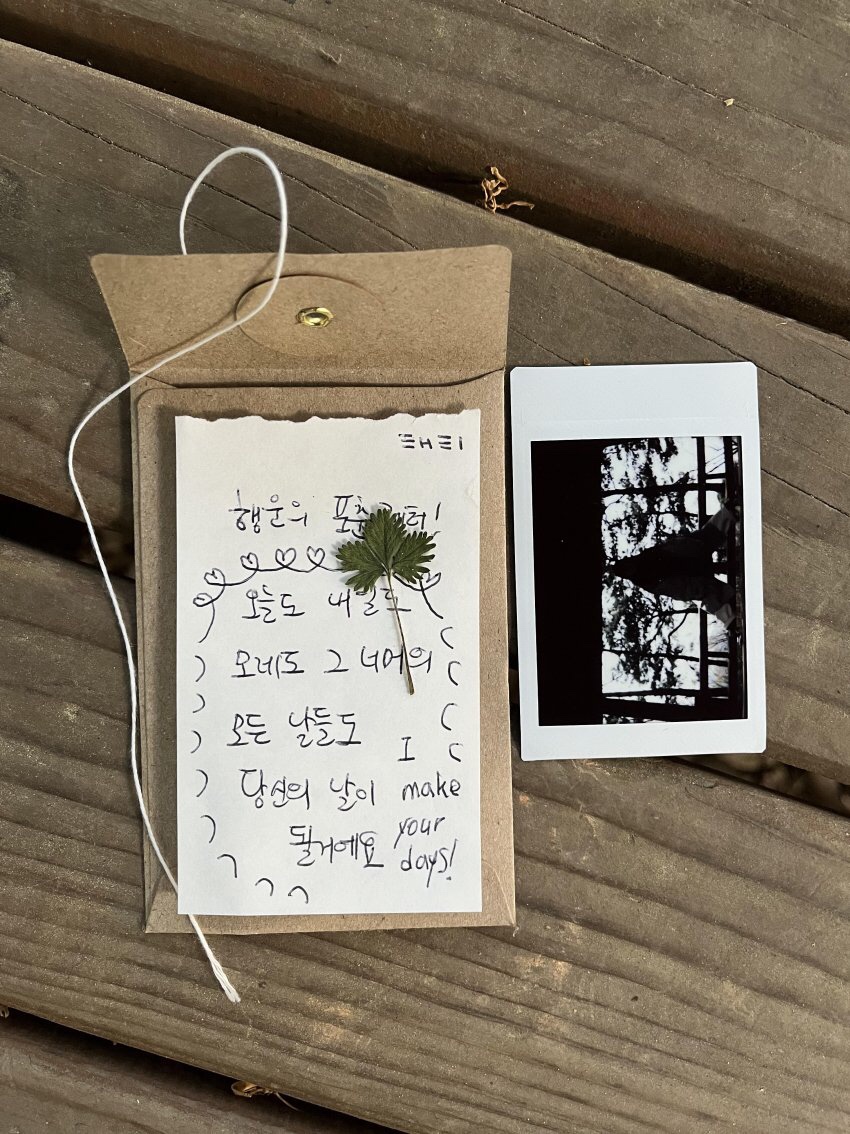 행운의
오늘도 내일도
모레도 그 너머의
모든 날들도
당신의 날이
될거예요
I
make
your
days!